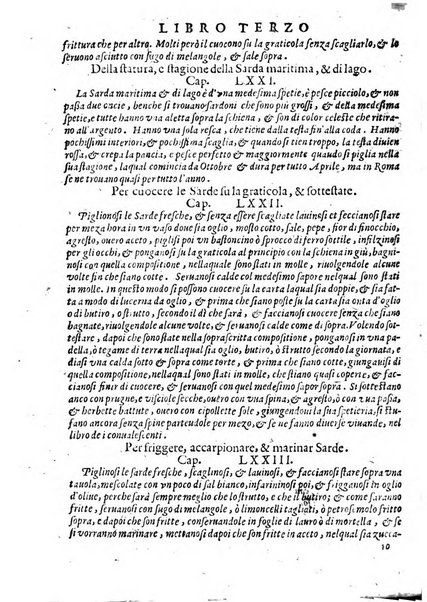 LIBRO TERZO
frittura che per altro. Molti però il cuocono su la graticola senza scagliarlo, & lo
seruono asciutto con sugo di melangole, & sale sopra.
Della statura, e stagione della Sarda maritima, & di lago.
Cap. LXXI.
La Sarda maritima & di lago è d'vna medesima spetie, è pesce picciolo, & non
passa due oncie, benche si trouano sardoni che sono più grossi, & della medesima
spetie, e tutte hanno vna aletta sopra la schiena, & son di color celeste che ritira-
no all'argento. Hanno vna sola resca, che tiene dalla testa fin'alla coda. Hanno
pochissimi interiori, & pochissima scaglia, & quando tien troppo, la testa diuien
rossa, & crepa la pancia, e pesce perfetto & maggiormente quando si piglia nella
sua stagione, laqual comincia da Ottobre & dura per tutto Aprile, ma in Roma
se ne trouano quasi per tutto l'anno.
Per cuocere le Sarde su la graticola, & sottestate.
Cap. LXXII.
Piglionosi le Sarde fresche, & senza essere scagliate lauinosi et faccianosi stare
per meza hora in vn vaso doue sia oglio, mosto cotto, sale, pepe, fior di finocchio,
agresto, ouero aceto, piglisi poi vn bastoncino di sproccho di ferro sottile, infilzinosi
per gli occhi, & ponganosi su la graticola al principio con la schiena in giù, bagni-
nosi con quella compositione, nellaquale sono stati in molle, riuolgendole alcune
volte, & seruanosi calde col medesimo sapor nelqual sono stati
in molle. In questo modo si possono cuocere su la carta laqual sia doppia, & sia fat-
ta a modo di lucerna da oglio, & prima che siano poste su la carta sia onta d'oglio
di butiro, o strutto, secondo il dì che sarà, & faccianosi cuocere senza che siano
bagnate, riuolgendole alcune volte, & seruanosi calde come di sopra. Volendo sot-
testare, dapoi che sono state nella soprascritta compositione, ponganosi in vna pa-
della, ò tegame di terra nellaqual sia oglio, butiro, ò strutto secondo la giornata, &
diasi vna caldda sotto & sopra come torte, & prima che siano cotte, giungauisi di
quella compositione, nellaquale sono state in molle, tanto che stiano quasi coperte, & fac-
cianosi finir di cuocere, & seruanosi con quel medesimo sapor sopra. Si sottestano
anco con prugne, e visciole secche, ouero con vna spina, & agresto, ò con vua passa,
& herbette battute, ouero con cipollette sole, giungendoui la sua spetieria, si stu-
fano ancora senza spinarle partendole per mezo, & se ne fanno diuerse viuande, nel
libro de i conualescenti.
Per friggere, accarpionare, & marinar Sarde.
Cap. LXXIII.
Piglinosi le sarde fresche, scaglinosi, & lauinosi, & faccianosi stare sopra vna
tauola, mescolate con vn poco di sal bianco, infarininosi poi, & friggansi in oglio
d'oliue, perche sarà sempre meglio che lo strutto, e che il butiro; & come saranno
fritte, seruansi con sugo di melangole, ò limoncelli tagliati, ò petrosemolo fritto
sopra, e dapoi che son fritte, conseruandole in foglie di lauro ò di mortella, & se
si vorranno marinare, mettansi dapoi che son fritte in aceto, nelqual sia zucca-
ro